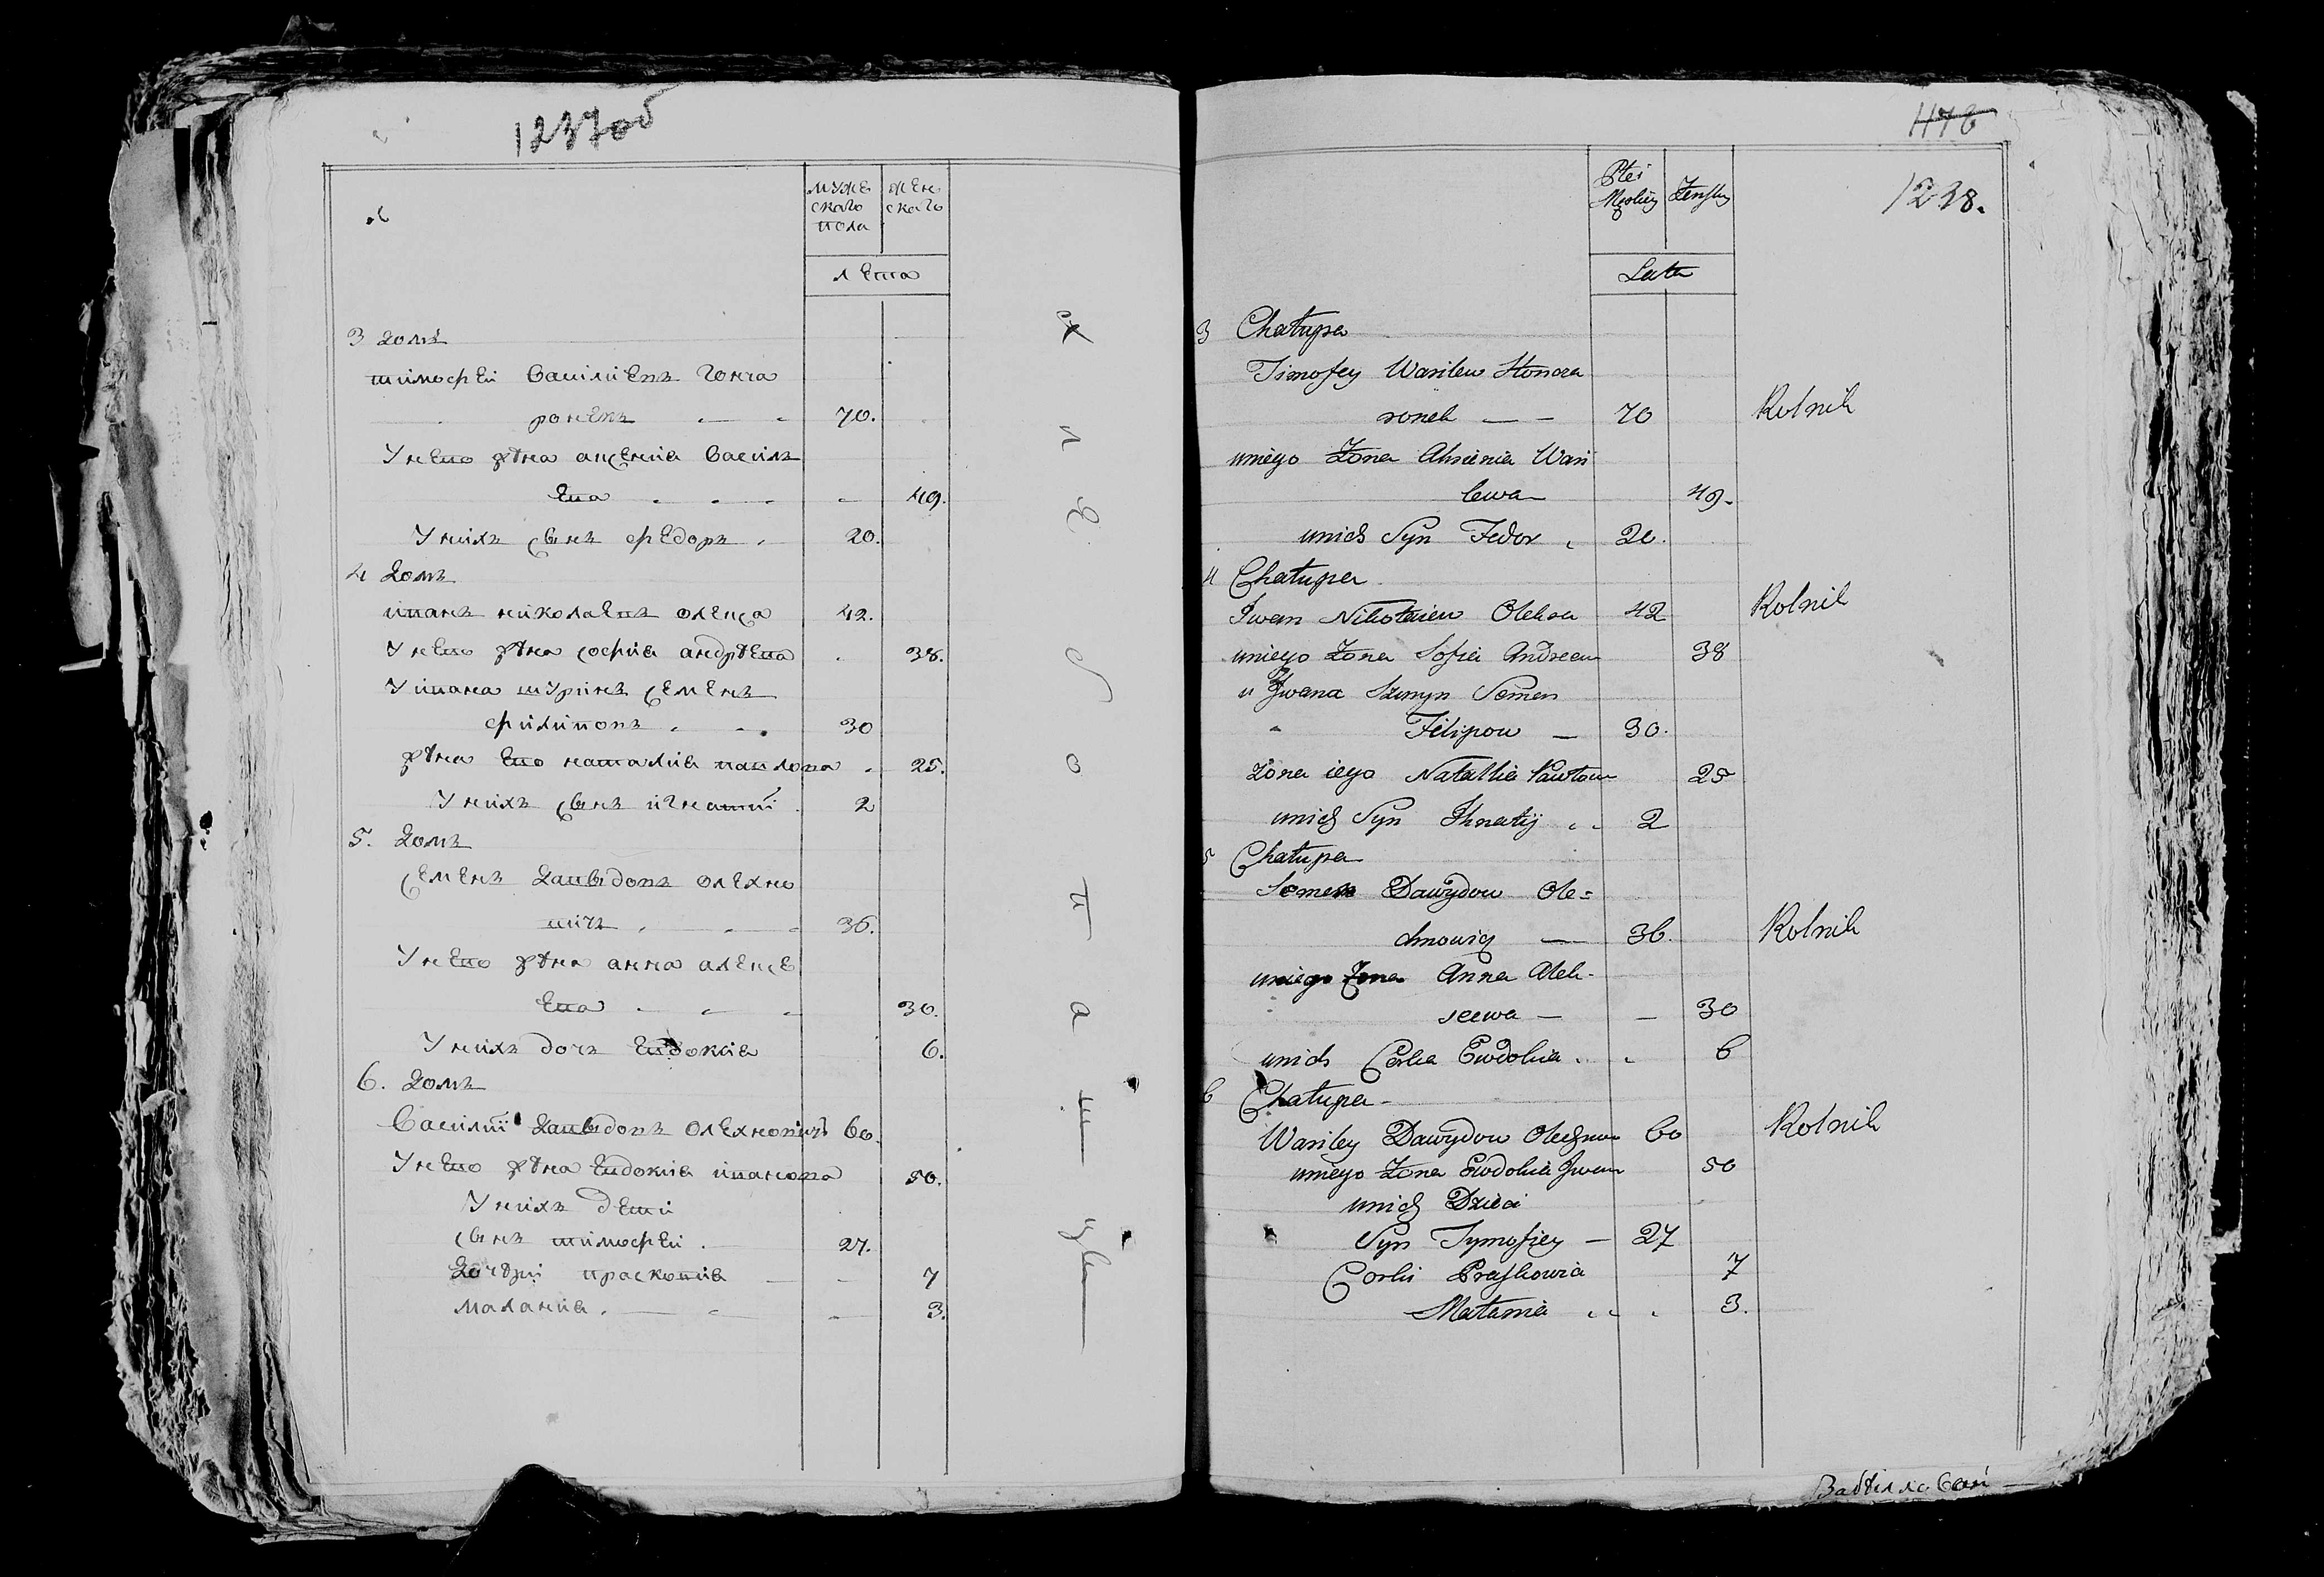 1237об
муже
ского
пола
жен
ского
лета
3 домъ
тимофеи василиевъ гонча
ронекъ 70.
у него жѣна аксения василь
ева 49.
у нихъ сынъ федоръ 20.
4 домъ
иванъ николаевъ олекса 42.
у него жѣна софия андрѣева 38.
у ивана шуринъ семенъ
филиповъ 30
жѣна его наталия павлова 25.
у нихъ сынъ игнатий 2
5. домъ
семенъ давыдовъ олехно
вичъ 36.
у него жѣна анна алексе
ева 30.
у нихъ дочь евдокия 6.
6. домъ
василий давыдовъ олехновичъ 60.
у него жѣна евдокия иванова 50.
у нихъ дети
сынъ тимофеи 27.
дочѣри прасковия 7
малания 3.
хлебопатцы
1238.
Płci
Męskiey
Żeńskiey
Lata
3 Chałupa
Timofey Wasilew Honcza
ronek — — 70 Rolnik
u niego Żona Aksienia Wasi
lewa 49.
u nich Syn Fedor 20.
4 Chałupa
Iwan Nikołaiew Oleksa 42 Rolnik
u niego Żona Sofia Andreew 38
u Iwana Szuryn Semen
Filipow — 30.
Żona iego Natallia Pawłow 25
u nich Syn Ihnatij 2
5 Chałupa
Semen Dawydow Ole=
chnowicz — 36. Rolnik
u niego Żona Anna Alek-
seewa — — 30
u nich Corka Ewdokia 6
6 Chałupa
Wasiley Dawydow Olechnow 60 Rolnik
u niego Żona Ewdokia Iwan 50
u nich Dzieci
Syn Tymofiey — 27
Corki Praskowia 7
Małania 3.